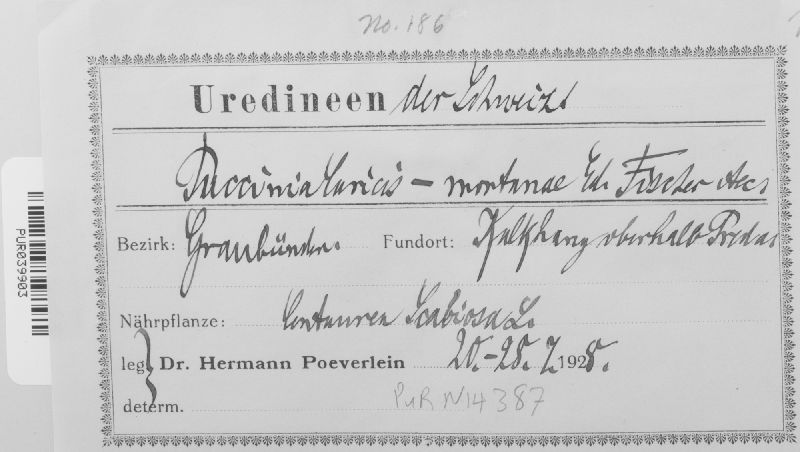 No. 186
Uredineen der Schweiz.
Puccinia Caricis – montanae Ed. Fischer Aec.
Bezirk: Graubünden. Fundort: Kalkhang oberhalb Predas
Nährpflanze: Centaurea Scabiosa L.
leg. Dr. Hermann Poeverlein 20.-28. 7. 1928.
determ.
PUR N14387
PUR039903